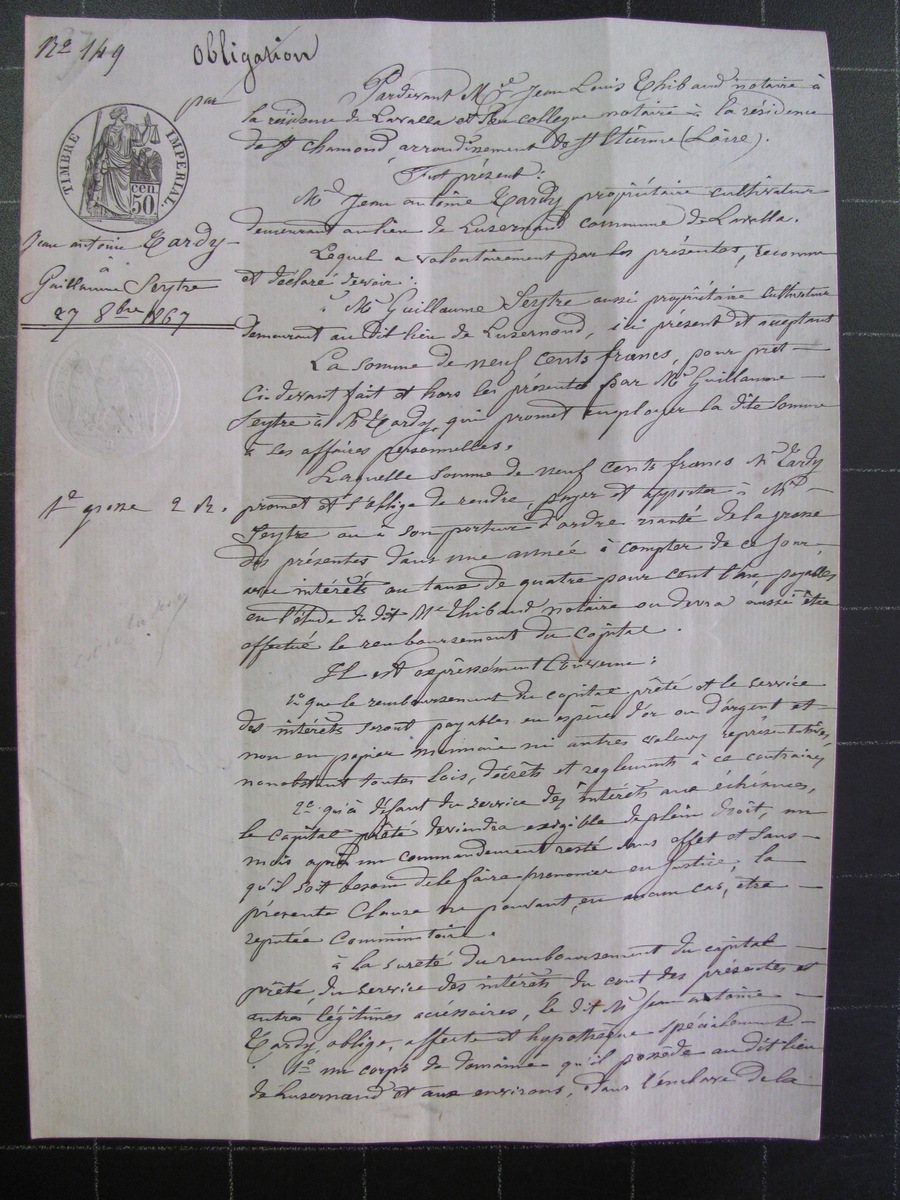 No 149
Obligation
par
TIMBRE IMPERIAL
50 cen
Jean antoine Tardy
à
Guillaume Seytre
27 8bre 1867
1re grosse 2 R.
Pardevant Me Jean Louis Thibaud notaire à
la résidence de Lavalla et son collègue notaire à la résidence
de St chamond, arrondissement de St Etienne (Loire).
Fut présent:
Mr Jean antoine Tardy propriétaire cultivateur
demeurant au lieu de Luzernaud commune de Lavalla.
Lequel a volontairement par les présentes, reconnu
et déclaré devoir:
à Mr Guillaume Seytre aussi propriétaire cultivateur
demeurant au dit lieu de Luzernaud, ici présent et acceptant
La somme de neuf cents francs, pour prêt
Ci devant fait et hors les présentes par Mr Guillaume
Seytre à Mr Tardy, qui promet employer la dite somme
à ses affaires personnelles.
Laquelle somme de neuf cents francs Mr Tardy
promet et s'oblige de rendre, payer et apporter à Mr
Seytre ou à son porteur d'ordre nanti de la grosse
des présentes dans une année à compter de ce jour
avec intérêts au taux de quatre pour cent l'an, payables
en l'étude du dit Me Thibaud notaire ou devra aussi être
effectué le remboursement du capital.
Il est expressément Convenu:
1o que le remboursement du capital prêté et le service
des intérêts seront payables en espèce d'or ou d'argent et
non en papier monnaie ni autres valeurs représentatives,
nonobstant toutes lois, décrets et reglements à ce contraires
2o qu'à défaut du service des intérêts aux échéances,
le capital prêté deviendra exigible de plein droit, un
mois après un commandement resté sans effet et sans
qu'il soit besoin de le faire prononcer en justice, la
présente Clause ne pouvant, en aucun cas, être
reputée Comminatoire.
à la sureté du remboursement du capital
prêté, du service des intérêts du cout des présentes et
autres légitimes accessoires, le dit Mr Jean antoine
Tardy, oblige, affecte et hypothèque spécialement
1o un corps de domaine qu'il possède au dit lieu
de Luzernaud et aux environs, dans l'enclave de la